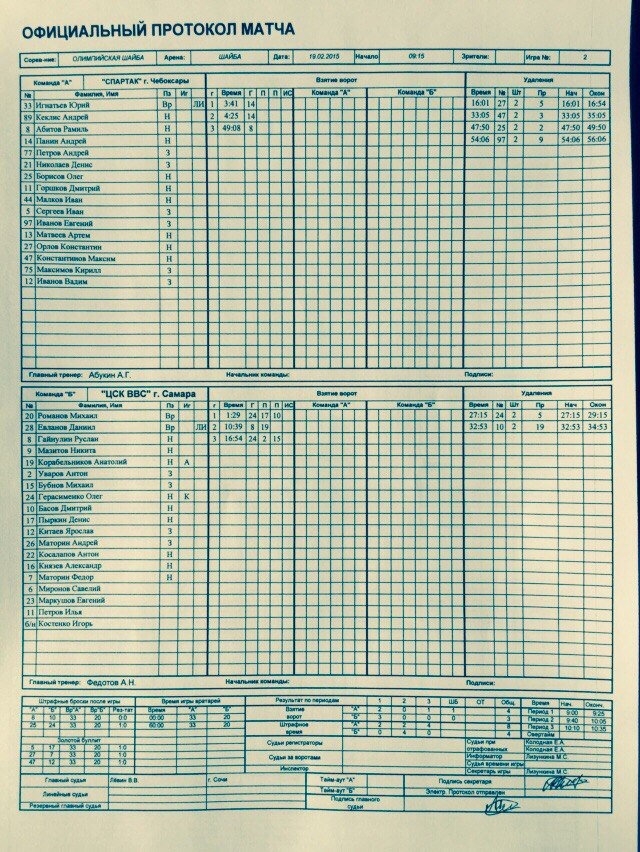 ОФИЦИАЛЬНЫЙ ПРОТОКОЛ МАТЧА
Сорев-ние: ОЛИМПИЙСКАЯ ШАЙБА Арена: ШАЙБА Дата: 19.02.2015 Начало 09:15 Зрители: Игра №: 2
Команда "А" "СПАРТАК" г. Чебоксары Взятие ворот Удаления
№ Фамилия, Имя Пз Иг г Время Г П П ИС Команда "А" Команда "Б" Время № Шт Пр Нач Окон
33 Игнатьев Юрий Вр ЛИ 1 3:41 14 16:01 27 2 5 16:01 16:54
89 Кеклис Андрей Н 2 4:25 14 33:05 47 2 3 33:05 35:05
8 Абитов Рамиль Н 3 49:08 8 47:50 25 2 2 47:50 49:50
14 Панин Андрей Н 54:06 97 2 9 54:06 56:06
77 Петров Андрей З
21 Николаев Денис З
25 Борисов Олег Н
11 Горшков Дмитрий Н
44 Малков Иван Н
5 Сергеев Иван З
97 Иванов Евгений З
13 Матвеев Артем Н
27 Орлов Константин Н
47 Константинов Максим Н
75 Максимов Кирилл З
12 Иванов Вадим З
Главный тренер: Абукин А.Г. Начальник команды: Подписи:
Команда "Б" "ЦСК ВВС" г. Самара Взятие ворот Удаления
№ Фамилия, Имя Пз Иг г Время Г П П ИС Команда "А" Команда "Б" Время № Шт Пр Нач Окон
20 Романов Михаил Вр 1 1:29 24 17 10 27:15 24 2 5 27:15 29:15
28 Евланов Даниил Вр ЛИ 2 10:39 8 19 32:53 10 2 19 32:53 34:53
8 Гайнулин Руслан Н 3 16:54 24 2 15
9 Мазитов Никита Н
19 Корабельников Анатолий Н А
2 Уваров Антон З
15 Бубнов Михаил З
24 Герасименко Олег Н К
10 Басов Дмитрий Н
17 Пыркин Денис Н
12 Китаев Ярослав З
26 Маторин Андрей З
22 Косалапов Антон Н
16 Князев Александр Н
7 Маторин Федор Н
6 Миронов Савелий
23 Маркушов Евгений
11 Петров Илья
б/н Костенко Игорь
Главный тренер: Федотов А.Н. Начальник команды: Подписи:
Штрафные броски после игры Время игры вратарей Результат по периодам 1 2 3 ШБ ОТ Общ. Время Начало Оконч.
"А" "Б" Вр"А" Вр"Б" Рез-тат Время "А" "Б" Взятие "А" 2 0 1 1 4 Период 1 9:00 9:25
8 10 33 20 0:0 00:00 33 20 ворот "Б" 3 0 0 0 3 Период 2 9:40 10:05
25 24 33 20 1:0 60:00 33 20 Штрафное "А" 2 2 4 8 Период 3 10:10 10:35
Золотой буллит время "Б" 0 4 0 4 Овертайм
5 17 33 20 1:0 Судьи регистраторы Судьи при отрафованных Колодная Е.А. Колодная Е.А.
27 7 33 20 1:0 Судьи за воротами Информатор Лизункина М.С.
47 12 33 20 1:0 Судья времени игры
Инспектор Секретарь игры Лизункина М.С.
Главный судья Лёвин В.В. г. Сочи Тайм-аут "А" Подпись секретаря
Линейные судьи Тайм-аут "Б" Электр. Протокол отправлен
Резервный главный судья Подпись главного судьи